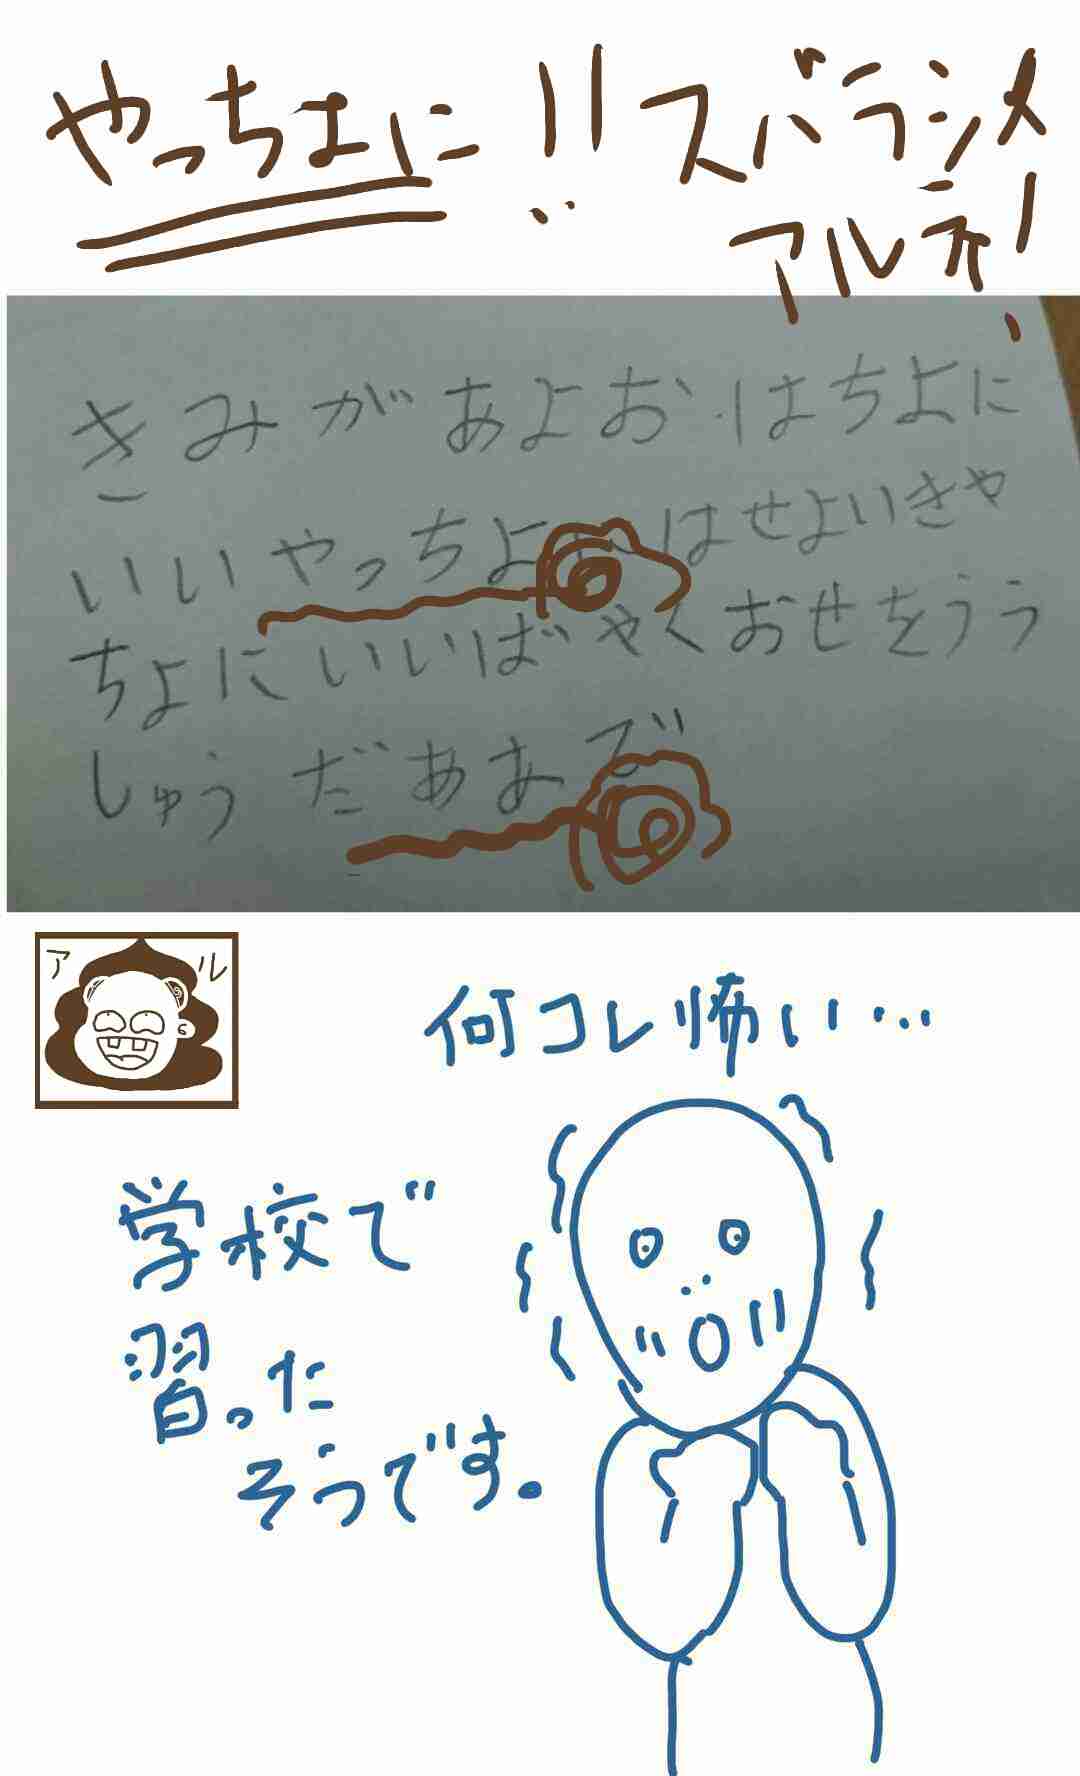 やっちよに!!
スバラシメ
アルネ!
きみがあよおはちよに
いいやっちよにはせよいきや
ちよにいいばやくおせをうう
しゅうだあまで
アル
何コレ怖い…
学校で
習った
そうです。